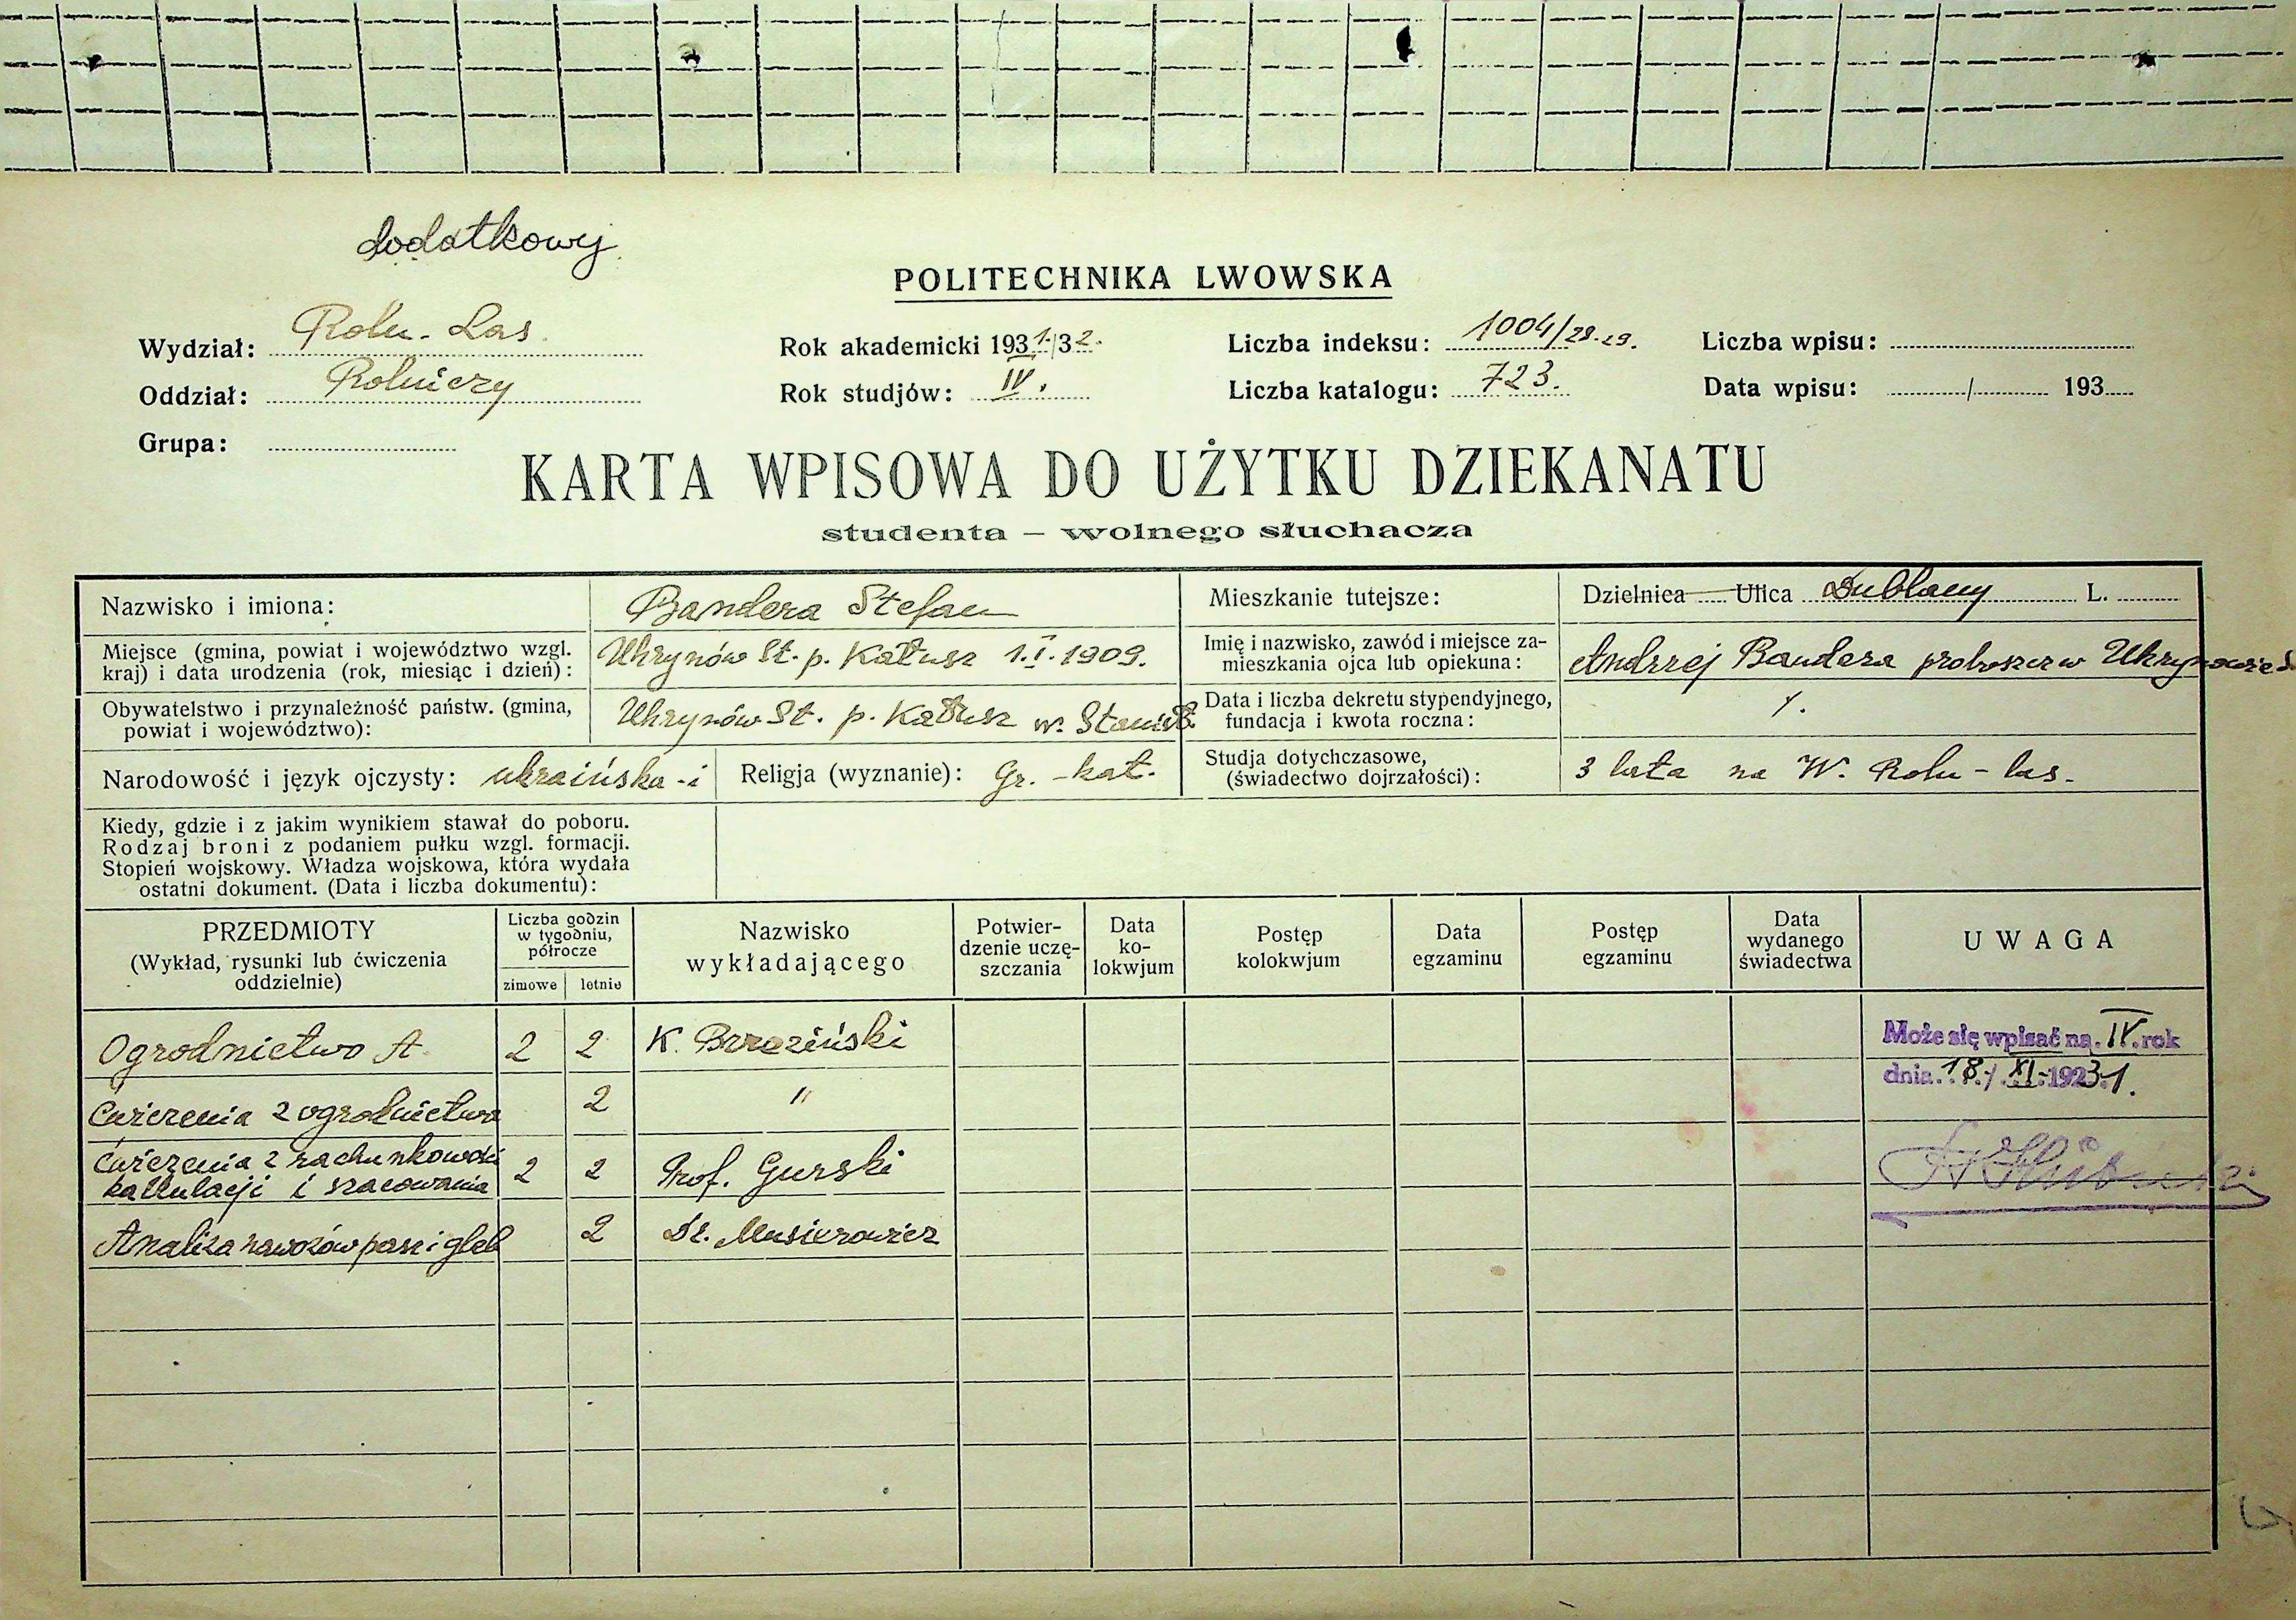 dodatkowy
POLITECHNIKA LWOWSKA
Wydział: Roln. Las. Rok akademicki 1931/32. Liczba indeksu: 1004/28-29. Liczba wpisu:
Oddział: Rolniczy Rok studjów: IV. Liczba katalogu: 723. Data wpisu: / 193
Grupa:
KARTA WPISOWA DO UŻYTKU DZIEKANATU
studenta – wolnego słuchacza
Nazwisko i imiona: Bandera Stefan
Mieszkanie tutejsze: Dzielnica Ulica Dublany L.
Miejsce (gmina, powiat i województwo wzgl.
kraj) i data urodzenia (rok, miesiąc i dzień): Uhrynów St. p. Kałusz 1.I.1909.
Imię i nazwisko, zawód i miejsce za-
mieszkania ojca lub opiekuna: Andrzej Bandera proboszcz w Uhrynowie S
Obywatelstwo i przynależność państw. (gmina,
powiat i województwo): Uhrynów St. p. Kałusz w. Stanisł.
Data i liczba dekretu stypendyjnego,
fundacja i kwota roczna:
Narodowość i język ojczysty: ukraińska -i Religja (wyznanie): Gr. -kat.
Studja dotychczasowe,
(świadectwo dojrzałości): 3 lata na W. Roln - las.
Kiedy, gdzie i z jakim wynikiem stawał do poboru.
Rodzaj broni z podaniem pułku wzgl. formacji.
Stopień wojskowy. Władza wojskowa, która wydała
ostatni dokument. (Data i liczba dokumentu):
PRZEDMIOTY
(Wykład, rysunki lub ćwiczenia
oddzielnie)
Liczba godzin
w tygodniu,
półrocze
zimowe letnie
Nazwisko
wykładającego
Potwier-
dzenie uczę-
szczania
Data
ko-
lokwjum
Postęp
kolokwjum
Data
egzaminu
Postęp
egzaminu
Data
wydanego
świadectwa
UWAGA
Ogrodnictwo A. 2 2 K. Brzeziński
Ćwiczenia z ogrodnictwa 2 "
Ćwiczenia z rachunkowości
kalkulacji i szacowania 2 2 Prof. Gurski
Analiza nawozów pasz i gleb 2 Dr. Musierowicz
Może się wpisać na IV. rok
dnia 18./XI.1931.